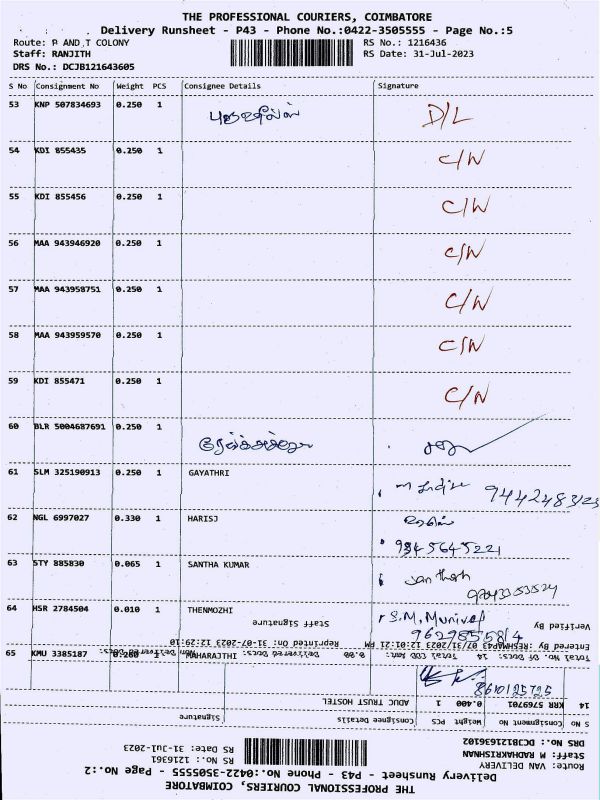 THE PROFESSIONAL COURIERS, COIMBATORE
Delivery Runsheet - P43 - Phone No.:0422-3505555 - Page No.:5
Route: R AND T COLONY RS No.: 1216436
Staff: RANJITH RS Date: 31-Jul-2023
DRS No.: DCJB121643605
S No Consignment No Weight PCS Consignee Details Signature
53 KNP 507834693 0.250 1 D/L
54 KDI 855435 0.250 1 C/W
55 KDI 855456 0.250 1 C/W
56 MAA 943946920 0.250 1 C/W
57 MAA 943958751 0.250 1 C/W
58 MAA 943959570 0.250 1 C/W
59 KDI 855471 0.250 1 C/W
60 BLR 5004687691 0.250 1
61 SLM 325190913 0.250 1 GAYATHRI
62 NGL 6997027 0.330 1 HARISJ
9345645221
63 STY 885830 0.065 1 SANTHA KUMAR Santhosh
64 HSR 2784504 0.010 1 THENMOZHI S.M.
Staff Signature Verified By
Entered By :RESHMAP43 07/31/2023 12:01:21 PM Reprinted On: 31-07-2023 12:29:10
65 KMU 3385187 1 MAHARAJTHI
Total No. Of Docs: 14 Total COD Amt: 0.00 Delivered Docs: Non Delivered Docs:
8610125725
14 KRR 5769701 0.400 1 ADUC TRUST HOSTEL
S No Consignment No Weight PCS Consignee Details Signature
DRS No.: DCJB121636102
Staff: M RADHAKRISHNAN RS Date: 31-Jul-2023
Route: VAN DELIVERY RS No.: 1216361
Delivery Runsheet - P43 - Phone No.:0422-3505555 - Page No.:2
THE PROFESSIONAL COURIERS, COIMBATORE